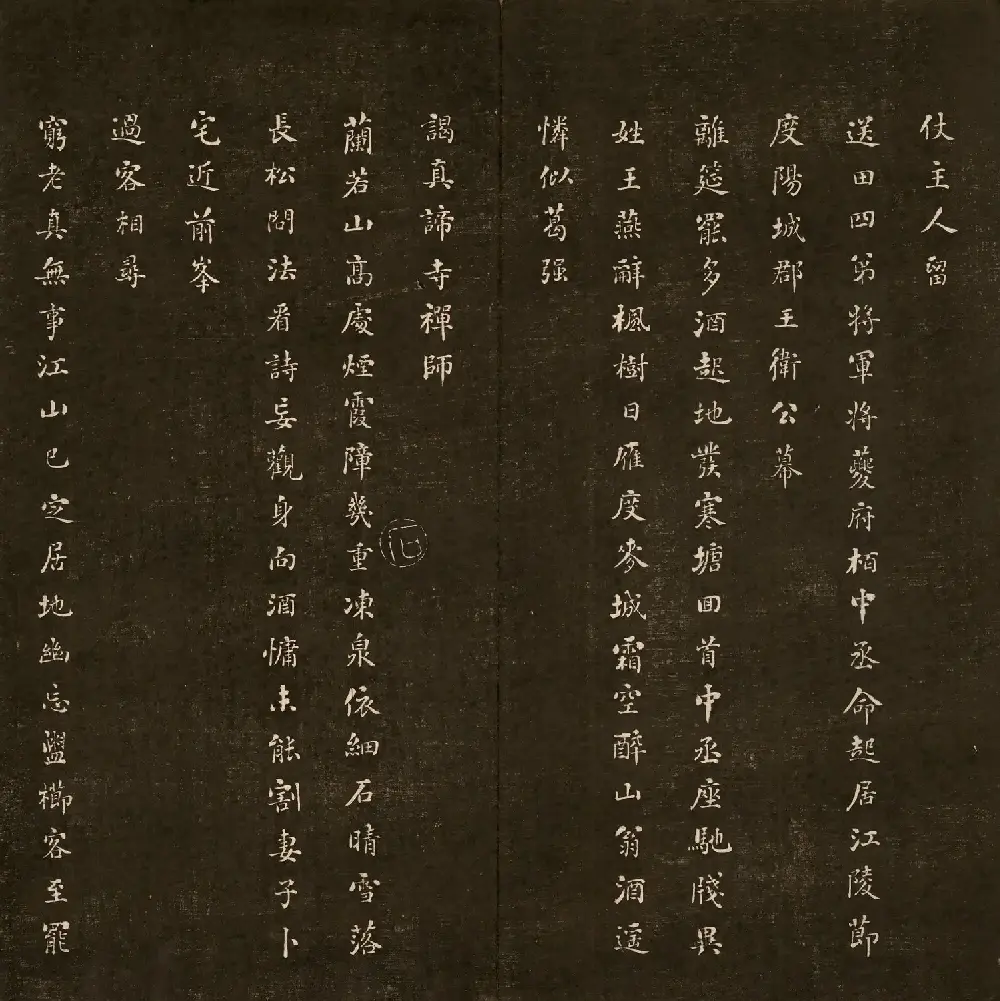 仗主人留
送田四弟將軍將夔府栢中丞命起居江陵節
度陽城郡王衛公幕
離筵罷多酒起地發寒塘回首中丞座馳牋異
姓王燕辭楓樹日雁度麥城霜空醉山翁酒遥
憐似葛强
謁真諦寺禪師
蘭若山高處煙霞障幾重凍泉依細石晴雪落
長松問法看詩妄觀身向酒慵未能割妻子卜
宅近前峯
過客相尋
窮老真無事江山已定居地幽忘盥櫛客至罷